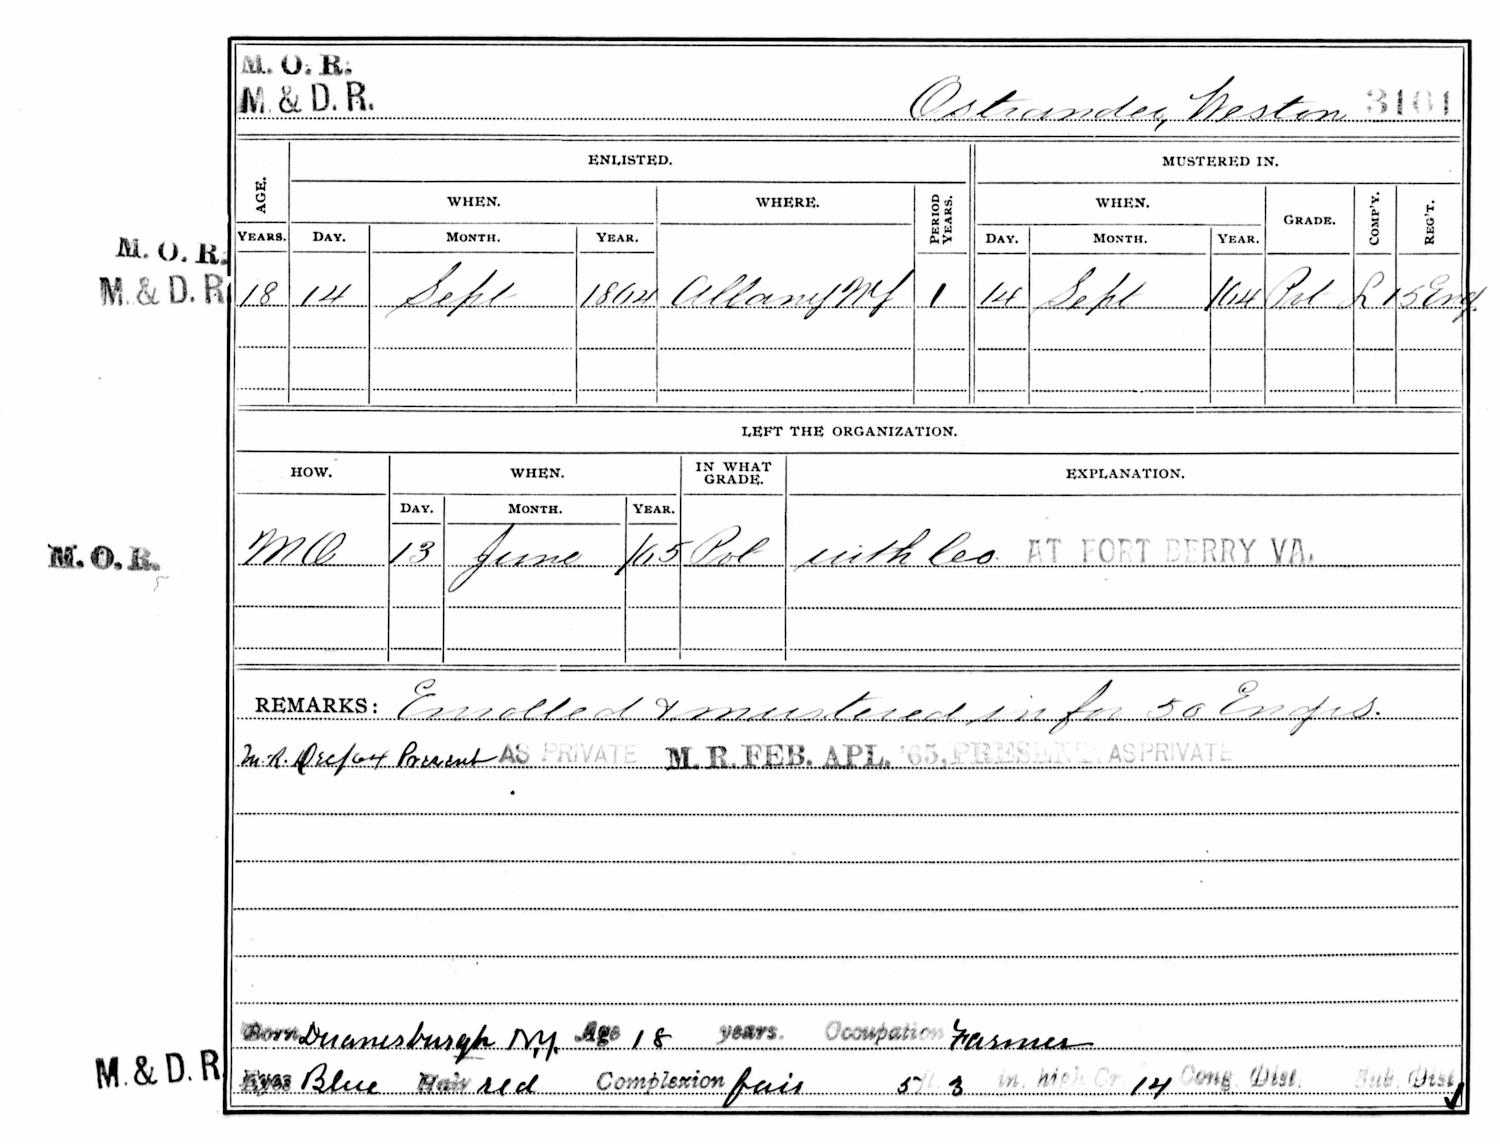 M. O. R.
M. & D. R.
Ostrander, Weston 3101
ENLISTED. MUSTERED IN.
AGE. WHEN. WHERE. PERIOD YEARS. WHEN. GRADE. COMP'Y. REG'T.
YEARS. DAY. MONTH. YEAR. DAY. MONTH. YEAR.
M. O. R.
M. & D. R 18 14 Sept 1864 Albany NY 1 14 Sept /64 Pvt L 15 Eng.
LEFT THE ORGANIZATION.
HOW. WHEN. IN WHAT GRADE. EXPLANATION.
DAY. MONTH. YEAR.
M. O. R. MO 13 June /65 Pvt with Co. AT FORT BERRY VA.
REMARKS: Enrolled & mustered in for 50 Engrs.
M.R. Dec/64 Present AS PRIVATE M. R. FEB. APL. '65, PRESENT AS PRIVATE
Born Duanesburgh N.Y. Age 18 years. Occupation Farmer
M. & D. R Eyes Blue Hair red Complexion fair 5 ft. 3 in. high Cr. 14 Cong. Dist. Sub. Dist